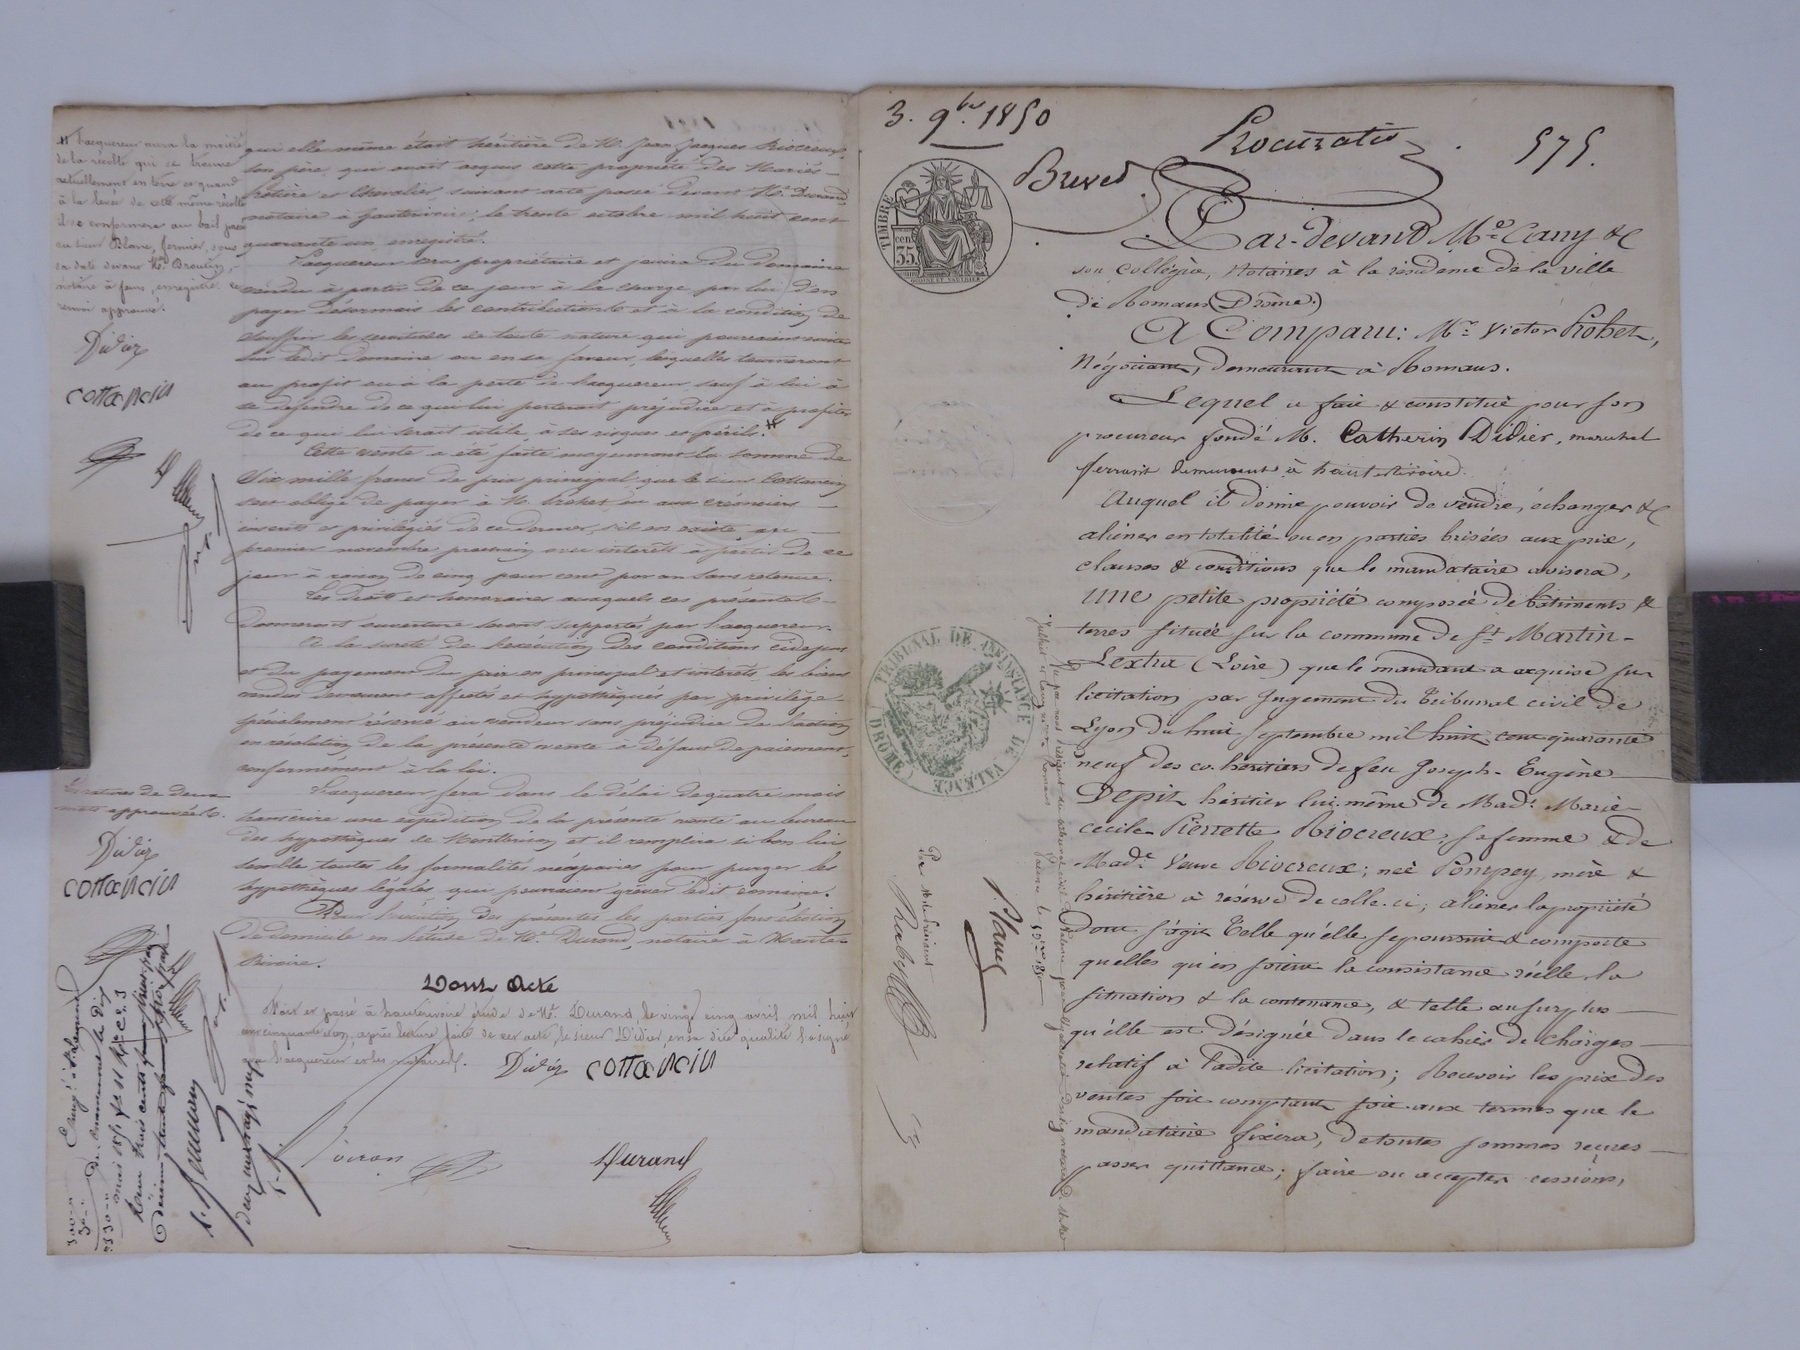 # L'acquereur aura la moitié
de la récolte qui se trouve
actuellement en terre et quand
à la levée de cette même récolte
il se conformera au bail passé
au sieur Blanc, fermier, sous
sa date devant Me
notaire à feurs, enregistré
renvoi approuvé.
Didier
cottancin
qui elle même était héritière de M. Jean Jacques Riocreux
son père, qui avait acquis cette propriété des Mariés
et Chevalier, suivant acte passé devant Me Durand
notaire à hauterivoire, le trente octobre mil huit cent
quarante un, enregistré.
L'acquereur sera propriétaire et jouira du domaine
vendu à partir de ce jour à la charge par lui d'en
payer désormais les contributions et à la condition de
souffrir les servitudes de toute nature qui pourraient exister
sur ledit domaine ou en sa faveur, lesquelles tourneront
au profit ou à la perte de l'acquereur sauf à lui à
se défendre de ce qui lui porterait préjudice et à profiter
de ce qui lui serait utile, à ses risques et périls. #
Cette vente a été faite moyennant la somme de
Dix mille francs de prix principal que le sieur Cottancin
sera obligé de payer à M. Probet ou aux créanciers
inscrits et privilégiés de ce dernier, s'il en existe, au
premier novembre prochain avec intérêts à partir de ce
jour à raison de cinq pour cent par an sans retenue.
Les droits et honoraires auxquels ces présentes
donneront ouverture seront supportés par l'acquereur.
A la sureté de l'exécution des conditions cidessus
et du payement du prix en principal et intérêts les biens
vendus demeurent affectés et hypothéqués par privilège
spécialement réservé au vendeur sans préjudice de l'action
en résolution de la présente vente à défaut de paiement,
conformément à la loi.
L'acquereur fera dans le délai de quatre mois
transcrire une expédition de la présente vente au bureau
des hypothèques de Montbrison et il remplira si bon lui
semble toutes les formalités nécessaires pour purger les
hypothèques légales qui pourraient grêver ledit domaine.
Pour l'exécution des présentes les parties font élection
de domicile en l'étude de Me Durand, notaire à Haute-
Rivoire.
Dont Acte
Fait et passé à hauterivoire étude de Me Durand, le vingt cinq avril mil huit
cent cinquante un, après lecture faite de cet acte, le sieur Didier, en sa dite qualité l'a signé
avec l'acquereur et les notaires.
Didier cottancin
Durand
ratures de deux
mots approuvées.
Didier
cottancin
3. 9bre 1850
Procuration.
575.
Brevet
TIMBRE
35 cen
Par-devant Me Cany &
son Collègue, Notaires à la résidence de la ville
de Romans (Drôme.)
A Comparu: Mr Victor Probet,
Négociant, demeurant à Romans.
Lequel a fait & constitué pour son
procureur fondé M. Catherin Didier, marechal
ferrant demeurant à hauterivoire.
Auquel il donne pouvoir de vendre, échanger &
aliéner en totalité ou en parties brisées aux prix,
clauses & conditions que le mandataire avisera,
une petite propriété composée de bâtiments &
terres située sur la commune de St Martin-
Lextra (Loire) que le mandant a acquise sur
licitation par Jugement du Tribunal civil de
Lyon du huit septembre mil huit cent quarante
neuf des co. héritiers de feu Joseph-Eugène
Depit, héritier lui-même de Made Marie-
Cécile Pierrette Riocreux, sa femme & de
Made Veuve Riocreux; née Pompey, mère &
héritière à réserve de celle-ci; aliéner la propriété
dont s'agit telle qu'elle se poursuit & comporte
quelles qu'en soient la consistance réelle, la
situation & la contenance, & telle au surplus
qu'elle est désignée dans le cahier de charges
relatif à ladite licitation; Recevoir les prix des
ventes soit comptant soit aux termes que le
mandataire fixera, de toutes sommes reçues
passer quittance; faire ou accepter cessions,
TRIBUNAL DE 1re INSTANCE DE VALENCE (DROME)